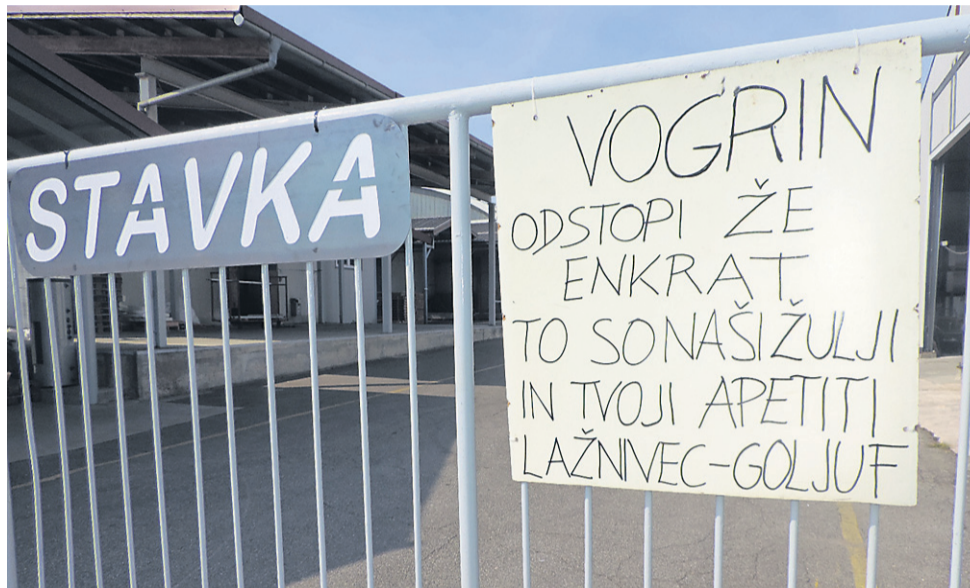 STAVKA
VOGRIN
ODSTOPI ŽE
ENKRAT
TO SO NAŠI ŽULJI
IN TVOJI APETITI
LAŽNIVEC-GOLJUF